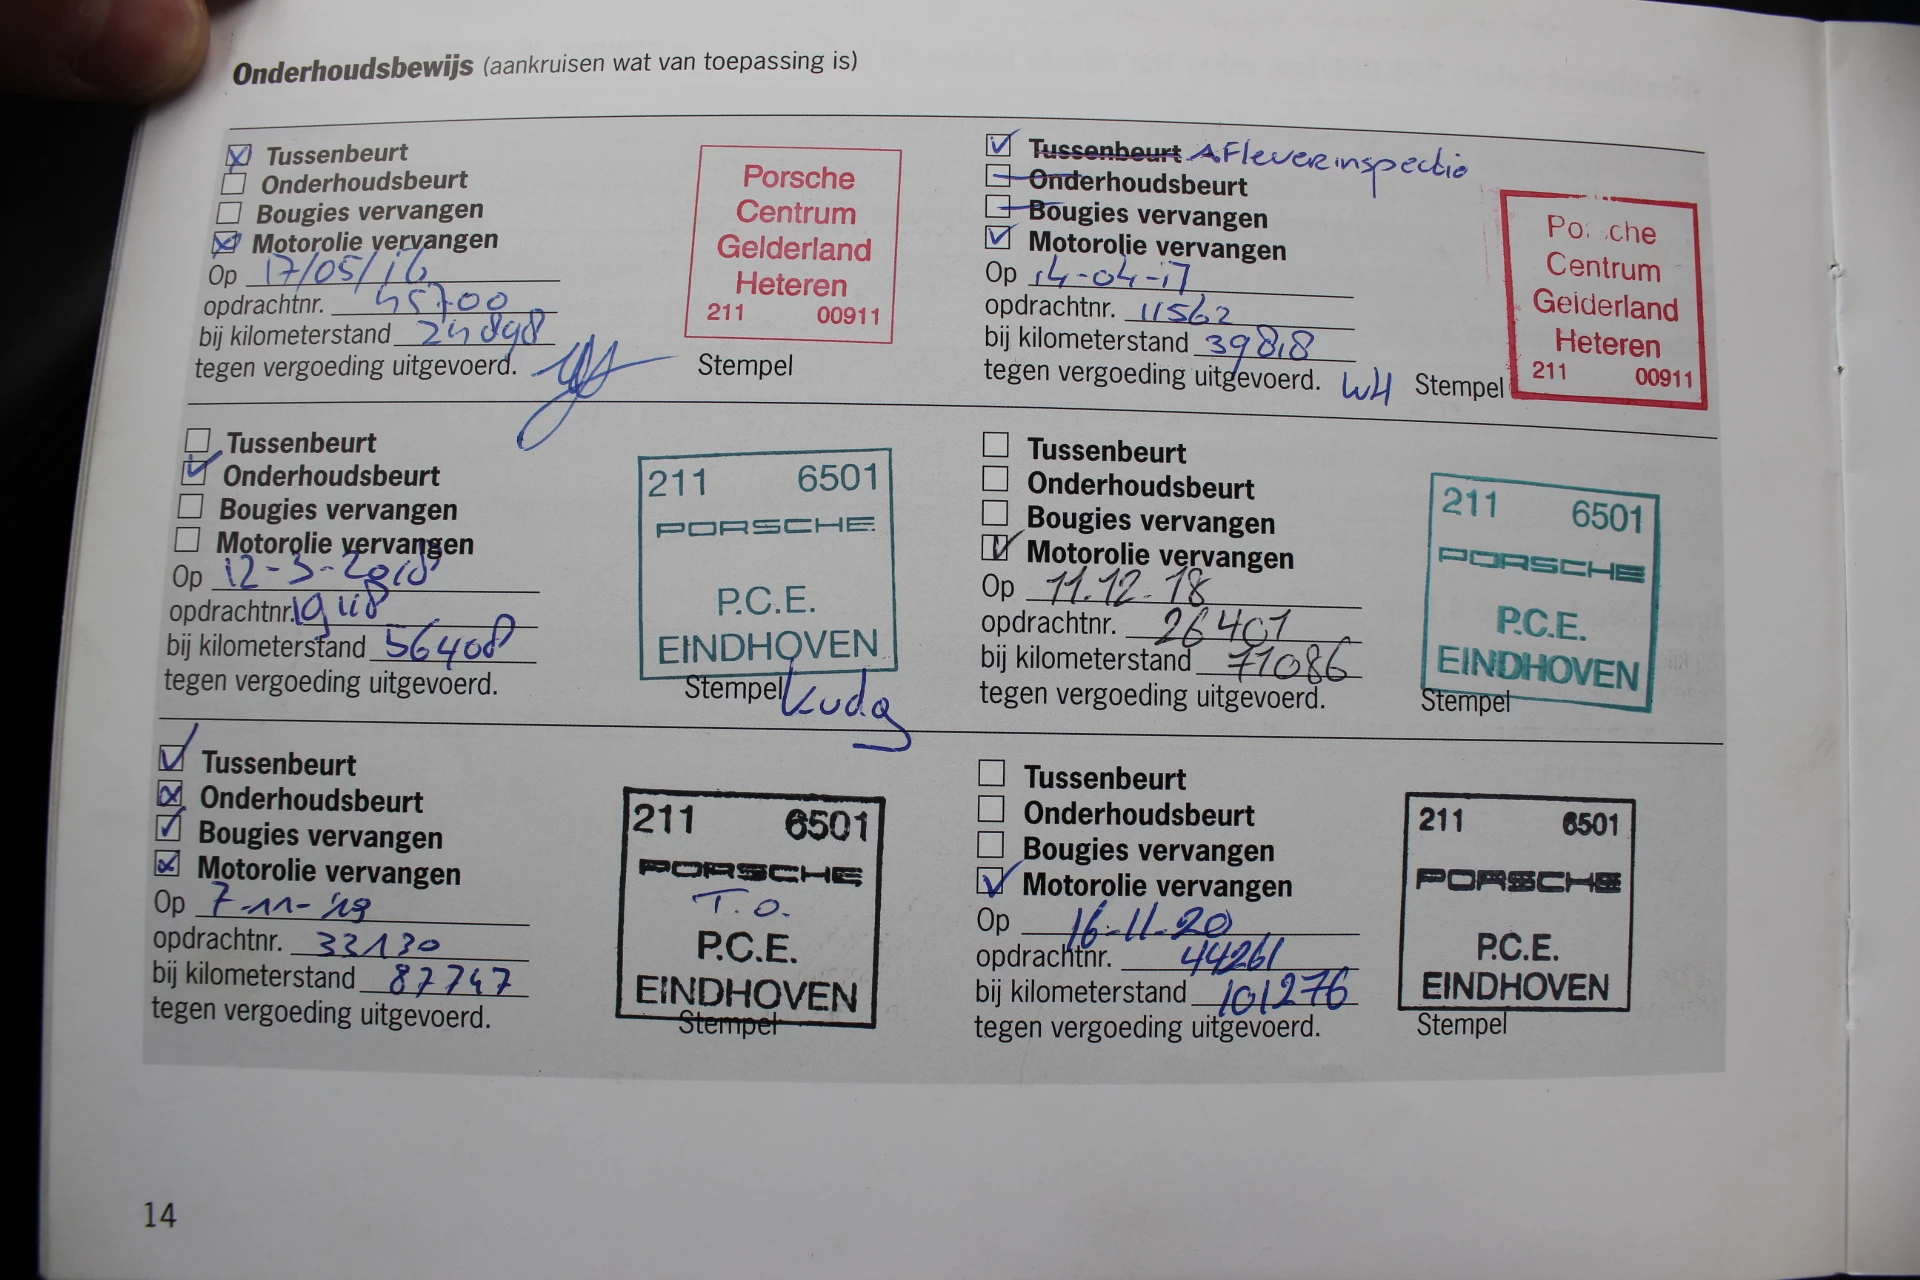 Onderhoudsbewijs (aankruisen wat van toepassing is)
Tussenbeurt
Onderhoudsbeurt
Bougies vervangen
Motorolie vervangen
Op 17/05/16
opdrachtnr. 45700
bij kilometerstand 24898
tegen vergoeding uitgevoerd.
Porsche
Centrum
Gelderland
Heteren
211 00911
Stempel
Tussenbeurt Afleverinspectie
Onderhoudsbeurt
Bougies vervangen
Motorolie vervangen
Op 14-04-17
opdrachtnr. 11562
bij kilometerstand 39818
tegen vergoeding uitgevoerd. WH
Porsche
Centrum
Gelderland
Heteren
211 00911
Stempel
Tussenbeurt
Onderhoudsbeurt
Bougies vervangen
Motorolie vervangen
Op 12-3-2018
opdrachtnr. 19118
bij kilometerstand 56408
tegen vergoeding uitgevoerd.
211 6501
PORSCHE
P.C.E.
EINDHOVEN
Stempel
Tussenbeurt
Onderhoudsbeurt
Bougies vervangen
Motorolie vervangen
Op 11.12.18
opdrachtnr. 26401
bij kilometerstand 71086
tegen vergoeding uitgevoerd.
211 6501
PORSCHE
P.C.E.
EINDHOVEN
Stempel
Tussenbeurt
Onderhoudsbeurt
Bougies vervangen
Motorolie vervangen
Op 7-11-'19
opdrachtnr. 33130
bij kilometerstand 87747
tegen vergoeding uitgevoerd.
211 6501
PORSCHE
T.O.
P.C.E.
EINDHOVEN
Stempel
Tussenbeurt
Onderhoudsbeurt
Bougies vervangen
Motorolie vervangen
Op 16-11-20
opdrachtnr. 44261
bij kilometerstand 101276
tegen vergoeding uitgevoerd.
211 6501
PORSCHE
P.C.E.
EINDHOVEN
Stempel
14